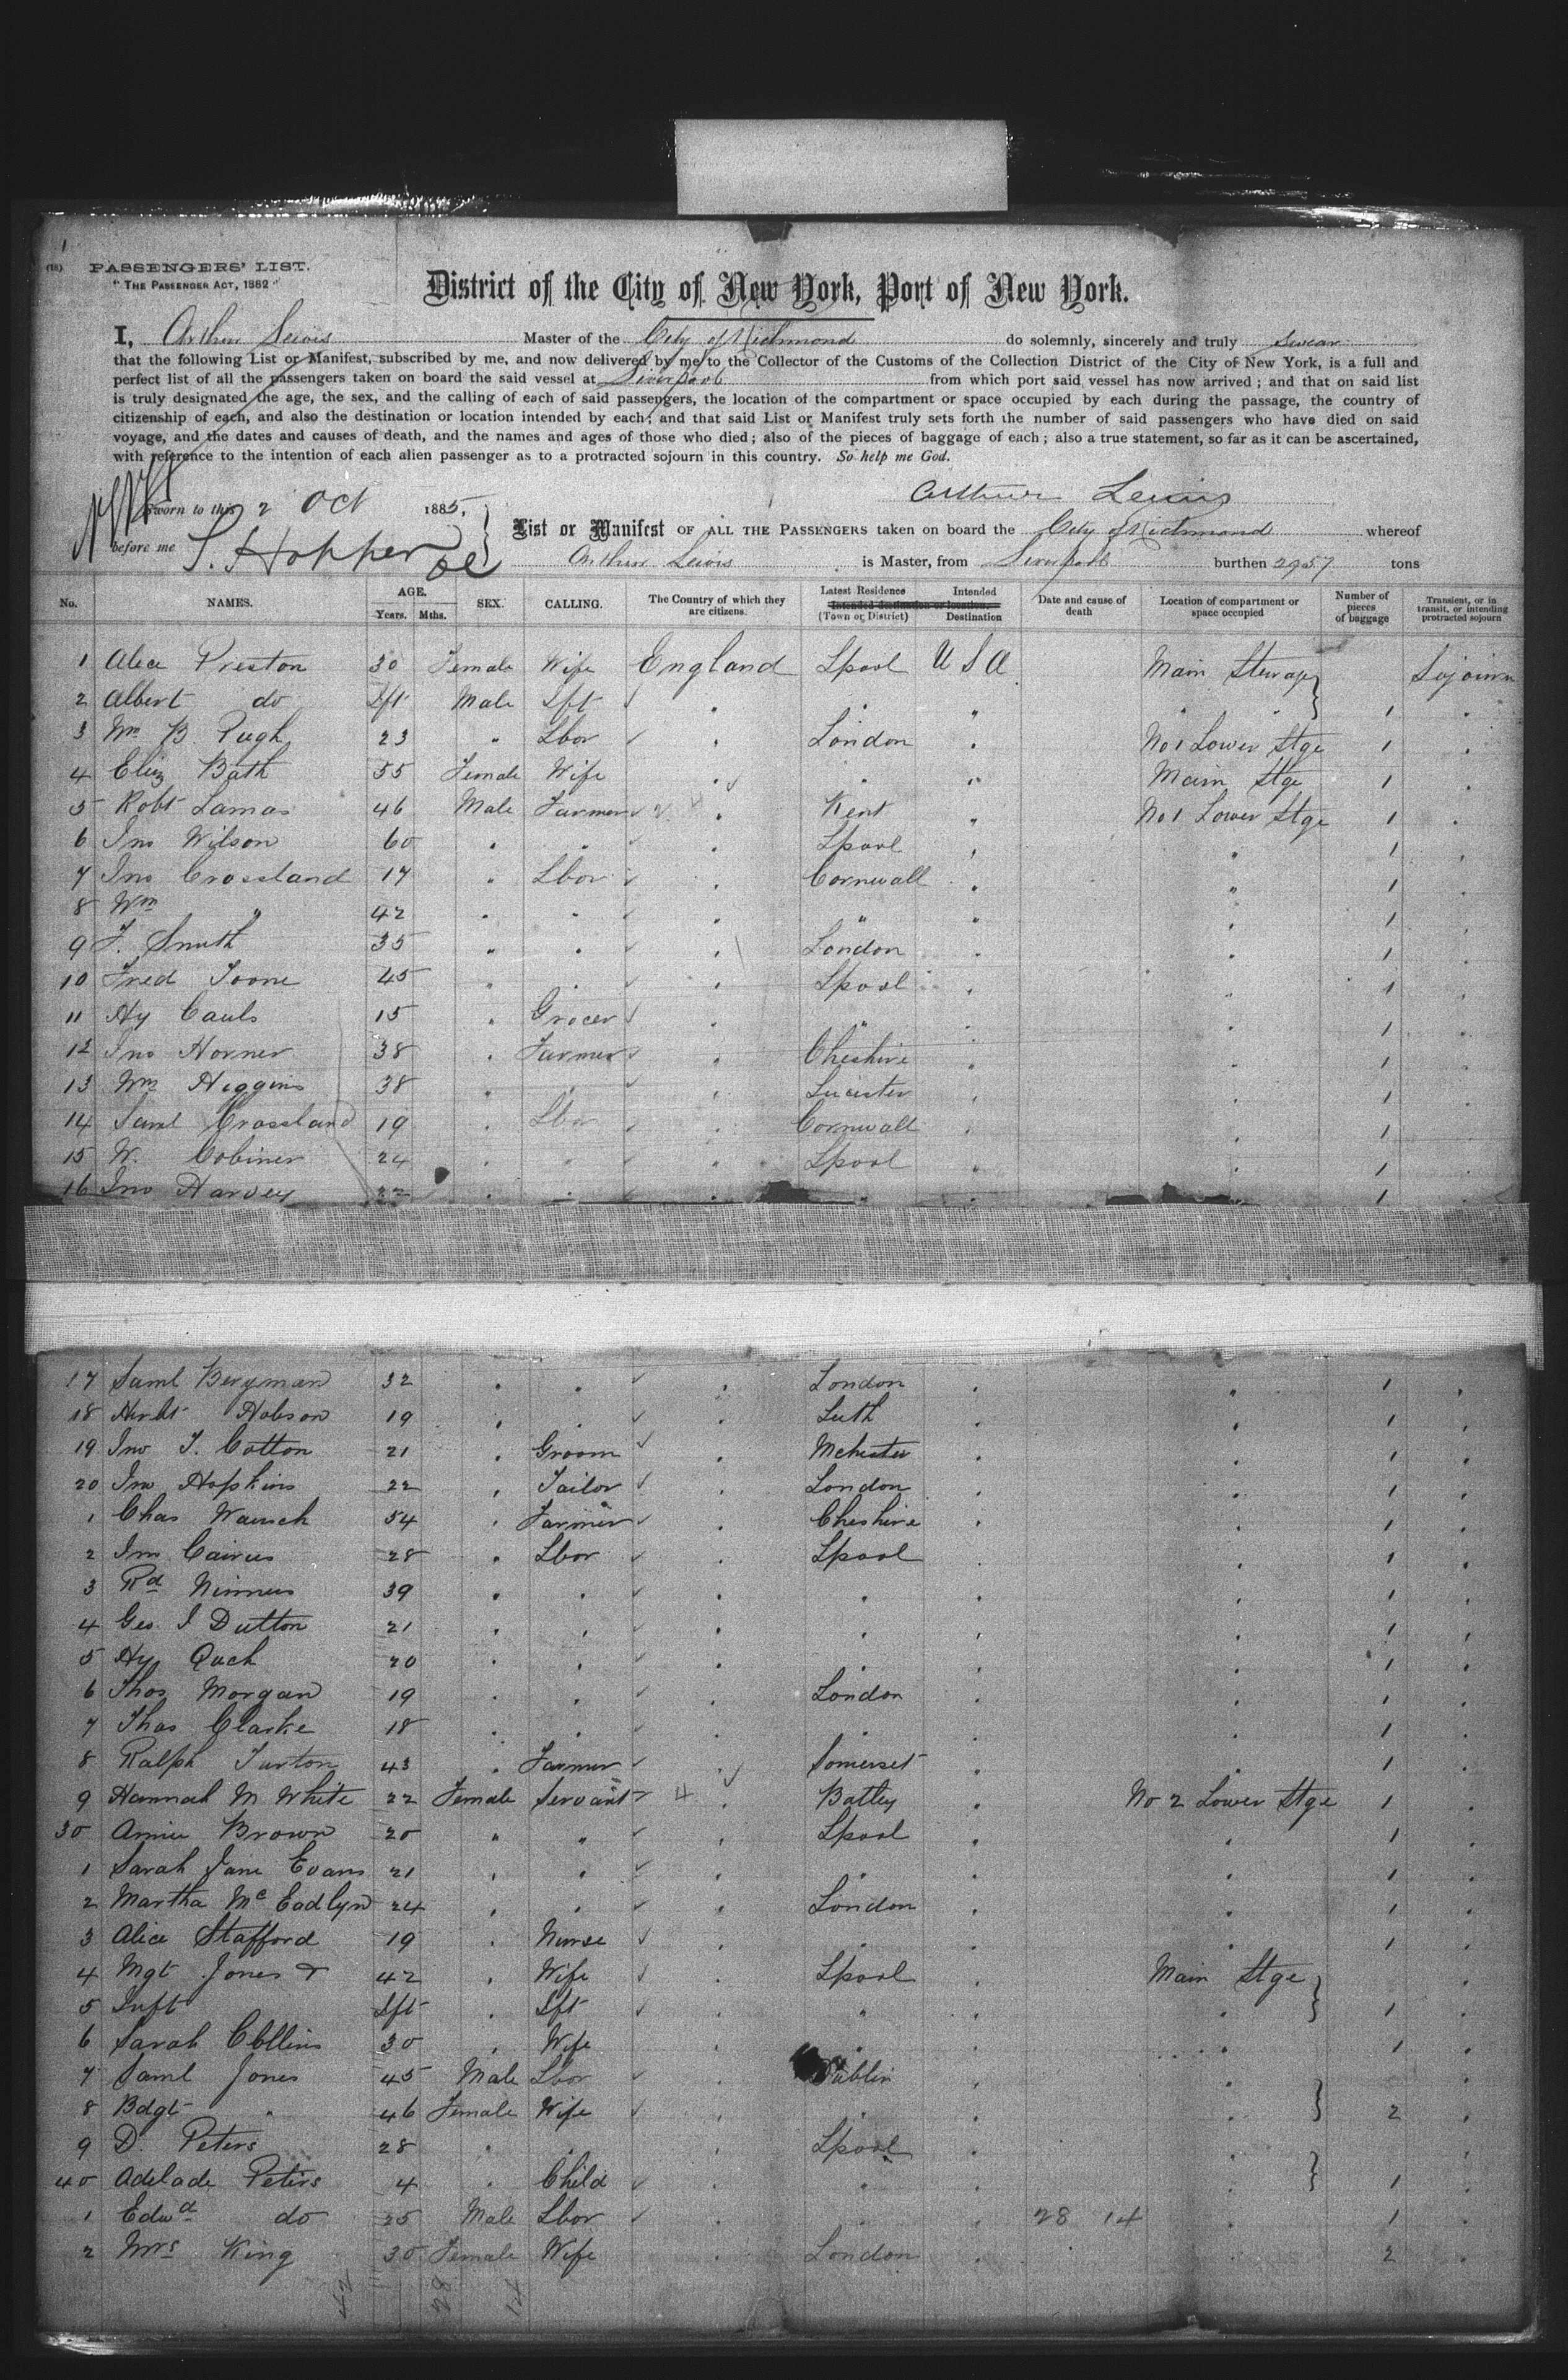 1
(18) PASSENGERS' LIST.
"THE PASSENGER ACT, 1882"
District of the City of New York, Port of New York.
I, Arthur Lewis Master of the City of Richmond do solemnly, sincerely and truly swear
that the following List or Manifest, subscribed by me, and now delivered by me to the Collector of the Customs of the Collection District of the City of New York, is a full and
perfect list of all the passengers taken on board the said vessel at Liverpool from which port said vessel has now arrived; and that on said list
is truly designated the age, the sex, and the calling of each of said passengers, the location of the compartment or space occupied by each during the passage, the country of
citizenship of each, and also the destination or location intended by each; and that said List or Manifest truly sets forth the number of said passengers who have died on said
voyage, and the dates and causes of death, and the names and ages of those who died; also of the pieces of baggage of each; also a true statement, so far as it can be ascertained,
with reference to the intention of each alien passenger as to a protracted sojourn in this country. So help me God.
Arthur Lewis
Sworn to this 2 Oct 1885,
before me S. Hopper
List or Manifest OF ALL THE PASSENGERS taken on board the City of Richmond whereof
Arthur Lewis is Master, from Liverpool burthen 2957 tons
No. NAMES. AGE. Years. Mths. SEX. CALLING. The Country of which they are citizens. Latest Residence (Town or District) Intended destination or location. Intended Destination Date and cause of death Location of compartment or space occupied Number of pieces of baggage Transient, or in transit, or intending protracted sojourn
1 Alice Preston 30 Female Wife England Lpool U S A Main Sterage Sojourn
2 Albert do Ift Male Ift " " " " 1 "
3 Wm B. Pugh 23 " Lbor " London " No 1 Lower Stge 1 "
4 Eliz Bath 55 Female Wife " " " Main Stge 1 "
5 Robt Lamas 46 Male Farmer " Kent " No 1 Lower Stge 1 "
6 Jno Wilson 60 " " " Lpool " " 1 "
7 Jno Crossland 17 " Lbor " Cornwall " " 1 "
8 Wm " 42 " " " " " " 1 "
9 J. Smith 35 " " " London " " 1 "
10 Fred Toone 45 " " " Lpool " " 1 "
11 Hy Cauls 15 " Grocer " " " " 1 "
12 Jno Horner 38 " Farmer " Cheshire " " 1 "
13 Wm Higgins 38 " " " Leicester " " 1 "
14 Saml Crossland 19 " Lbor " Cornwall " " 1 "
15 W. Cobiner 24 " " " Lpool " " 1 "
16 Jno Harvey 22 " " " " " " 1 "
17 Saml Bergman 32 " " " London " " 1 "
18 Herbt Hobson 19 " " " Leith " " 1 "
19 Jno T. Cotton 21 " Groom " Mchester " " 1 "
20 Jno Hopkins 22 " Tailor " London " " 1 "
1 Chas 54 " Farmer " Cheshire " " 1 "
2 Jno Cairns 28 " Lbor " Lpool " " 1 "
3 Rd 39 " " " " " " 1 "
4 Geo. J Dutton 21 " " " " " " 1 "
5 Hy Quck 20 " " " " " " 1 "
6 Thos Morgan 19 " " " London " " 1 "
7 Thos Clarke 18 " " " " " " 1 "
8 Ralph Turton 43 " Farmer " Somerset " " 1 "
9 Hannah M White 22 Female Servant 4 " Batley " No 2 Lower Stge 1 "
30 Annie Brown 20 " " " Lpool " " 1 "
1 Sarah Jane Evans 21 " " " " " " 1 "
2 Martha Mc Eadlyn 24 " " " London " " 1 "
3 Alice Stafford 19 " Nurse " " " " 1 "
4 Mgt Jones & 42 " Wife " Lpool " Main Stge "
5 Inft Ift " Ift " " " " 1 "
6 Sarah Collins 30 " Wife " " " " 1 "
7 Saml Jones 45 Male Lbor " Dublin " " "
8 Bdgt " 46 Female Wife " " " " 2 "
9 D. Peters 28 " " " Lpool " " "
40 Adelade Peters 4 " Child " " " " 1 "
1 Edwd do 25 Male Lbor " " " 28 14 " 1 "
2 Mrs King 30 Female Wife " London " " 2 "
42 28 14